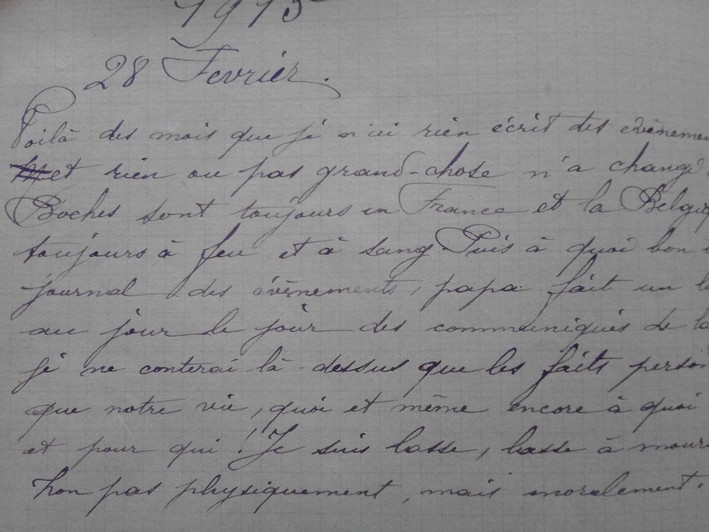 1915
28 Fevrier.
Voilà des mois que je n'ai rien écrit des évènemen
et rien ou pas grand-chose n'a changé.
Boches sont toujours en France et la Belgiq
toujours à feu et à sang. Puis à quoi bon
journal des évènements, papa fait un
au jour le jour des communiqués de la
je ne conterai là-dessus que les faits person
que notre vie, quoi et même encore à quoi
et pour qui! Je suis lasse, lasse à mouri
non pas physiquement, mais moralement.